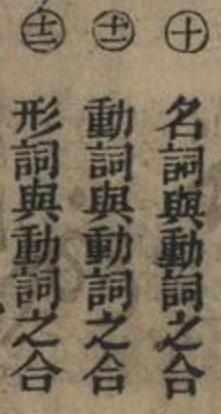 ㊉名詞與動詞之合
(十一)動詞與動詞之合
(十二)形詞與動詞之合